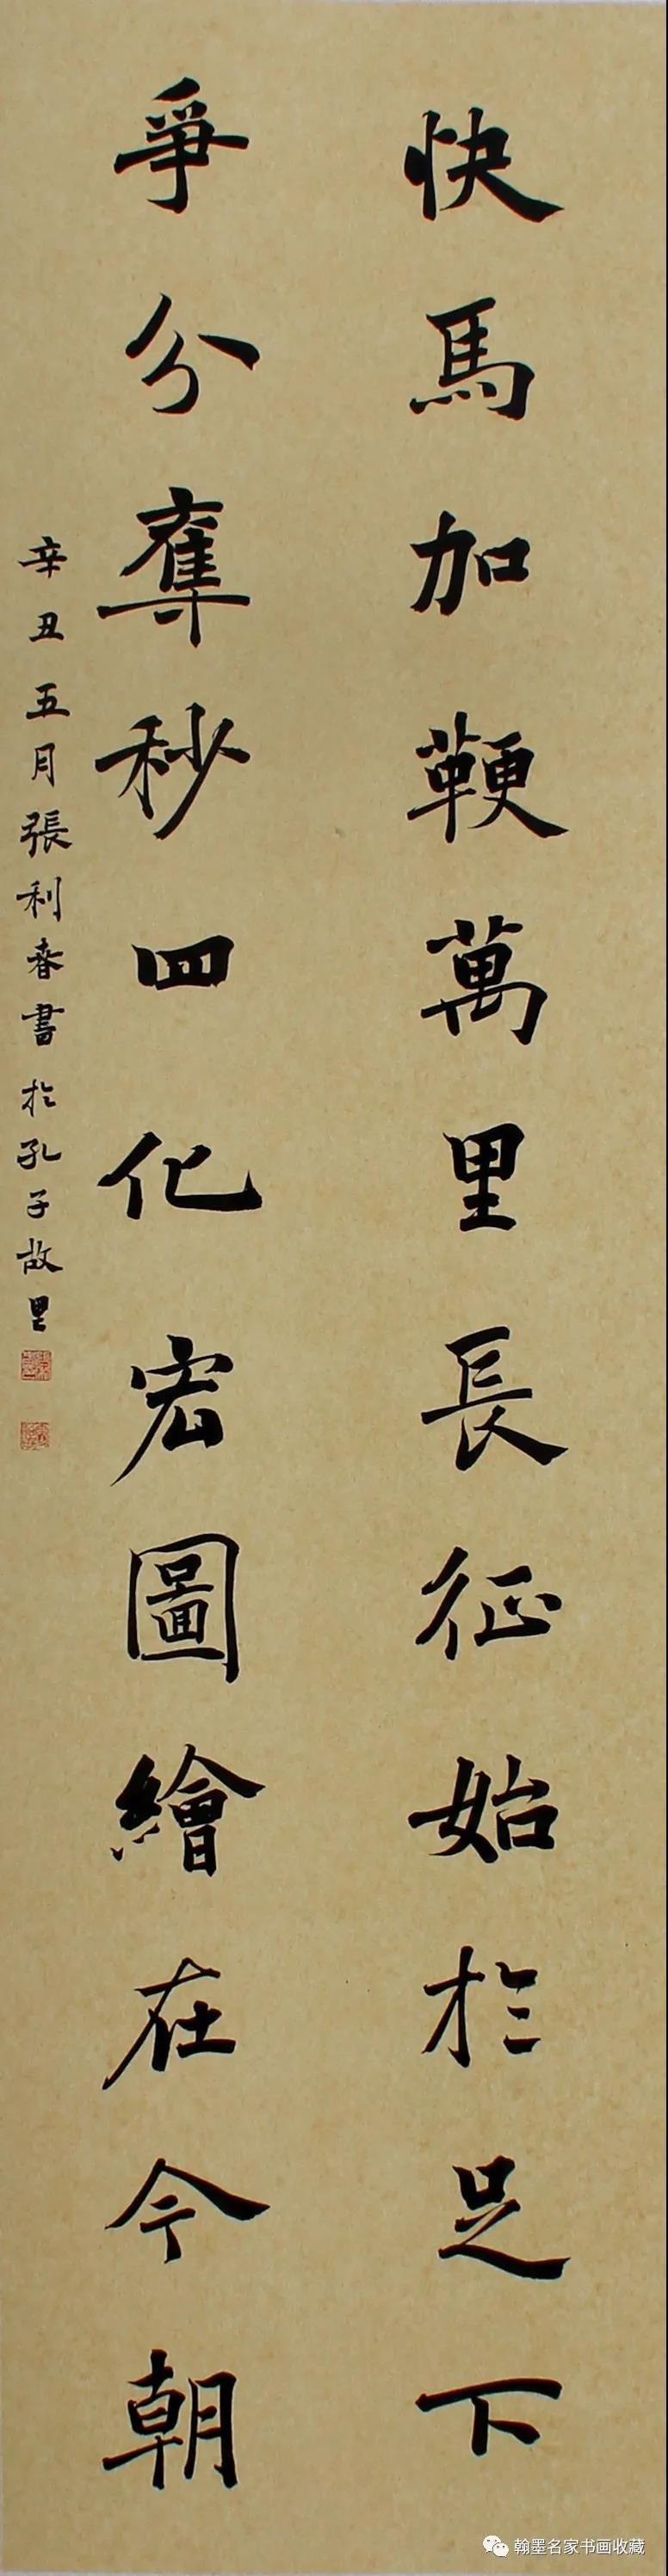 快馬加鞭萬里長征始於足下
爭分奪秒四化宏圖繪在今朝
辛丑五月張利春書於孔子故里
翰墨名家书画收藏